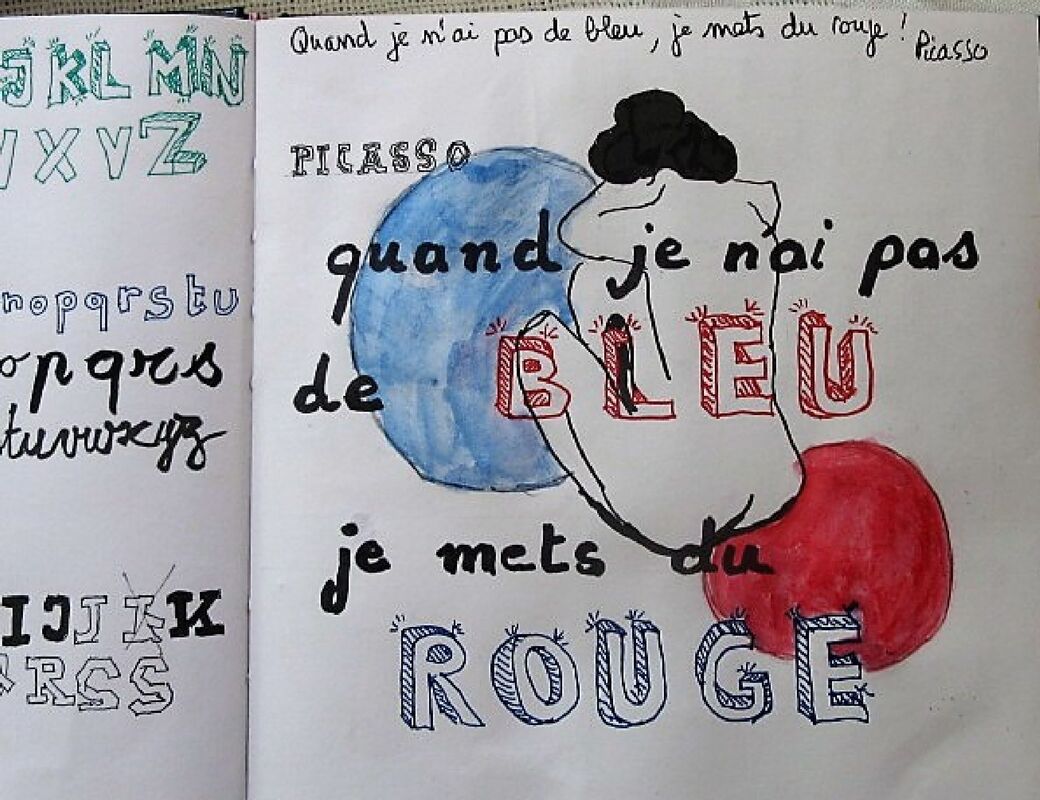 J K L M N
X V Z
n o p q r s t u
o p q r s
t u v w x y z
I J J I K K
R S S
Quand je n'ai pas de bleu, je mets du rouge !
Picasso
PICASSO
quand je n'ai pas
de BLEU
je mets du
ROUGE